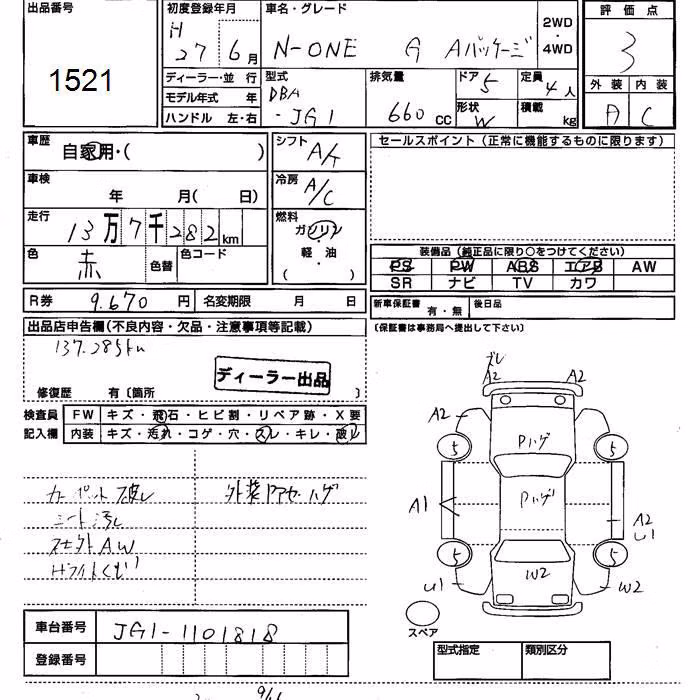 出品番号 初度登録年月 車名・グレード 2WD・4WD 評価点
1521 H 27 6月 N-ONE G Aパッケージ 3
ディーラー・並行 型式 排気量 ドア 5 定員 4人 外装 内装
モデル年式 年 DBA 660cc 形状 W 積載 kg A C
ハンドル 左・右 -JG1
車歴 自家用・( ) シフト A/T セールスポイント(正常に機能するものに限ります)
車検 年 月( 日) 冷房 A/C
走行 13万7千282km 燃料 ガソリン
軽・油
( )
色 赤 色替 色コード 装備品(純正品に限り○をつけてください)
PS PW ABS エアB AW
SR ナビ TV カワ
R券 9.670円 名変期限 月 日 新車保証書 有・無 後日品
出品店申告欄(不良内容・欠品・注意事項等記載) (保証書は事務局へ提出して下さい)
137.285km
ディーラー出品
修復歴 有〔箇所 〕
検査員 FW キズ・飛石・ヒビ割・リペア跡・X要
記入欄 内装 キズ・汚れ・コゲ・穴・スレ・キレ・破レ
ズレ
A2 A2
A2 Pハゲ
5 5
A1 Pハゲ A2
U1
5 5
U1 W2 W2
スペア
カーペット破レ 外装PアセハゲP
シート汚レ
社外AW
ホワイトくもり
車台番号 JG1-1101818
登録番号
型式指定 類別区分